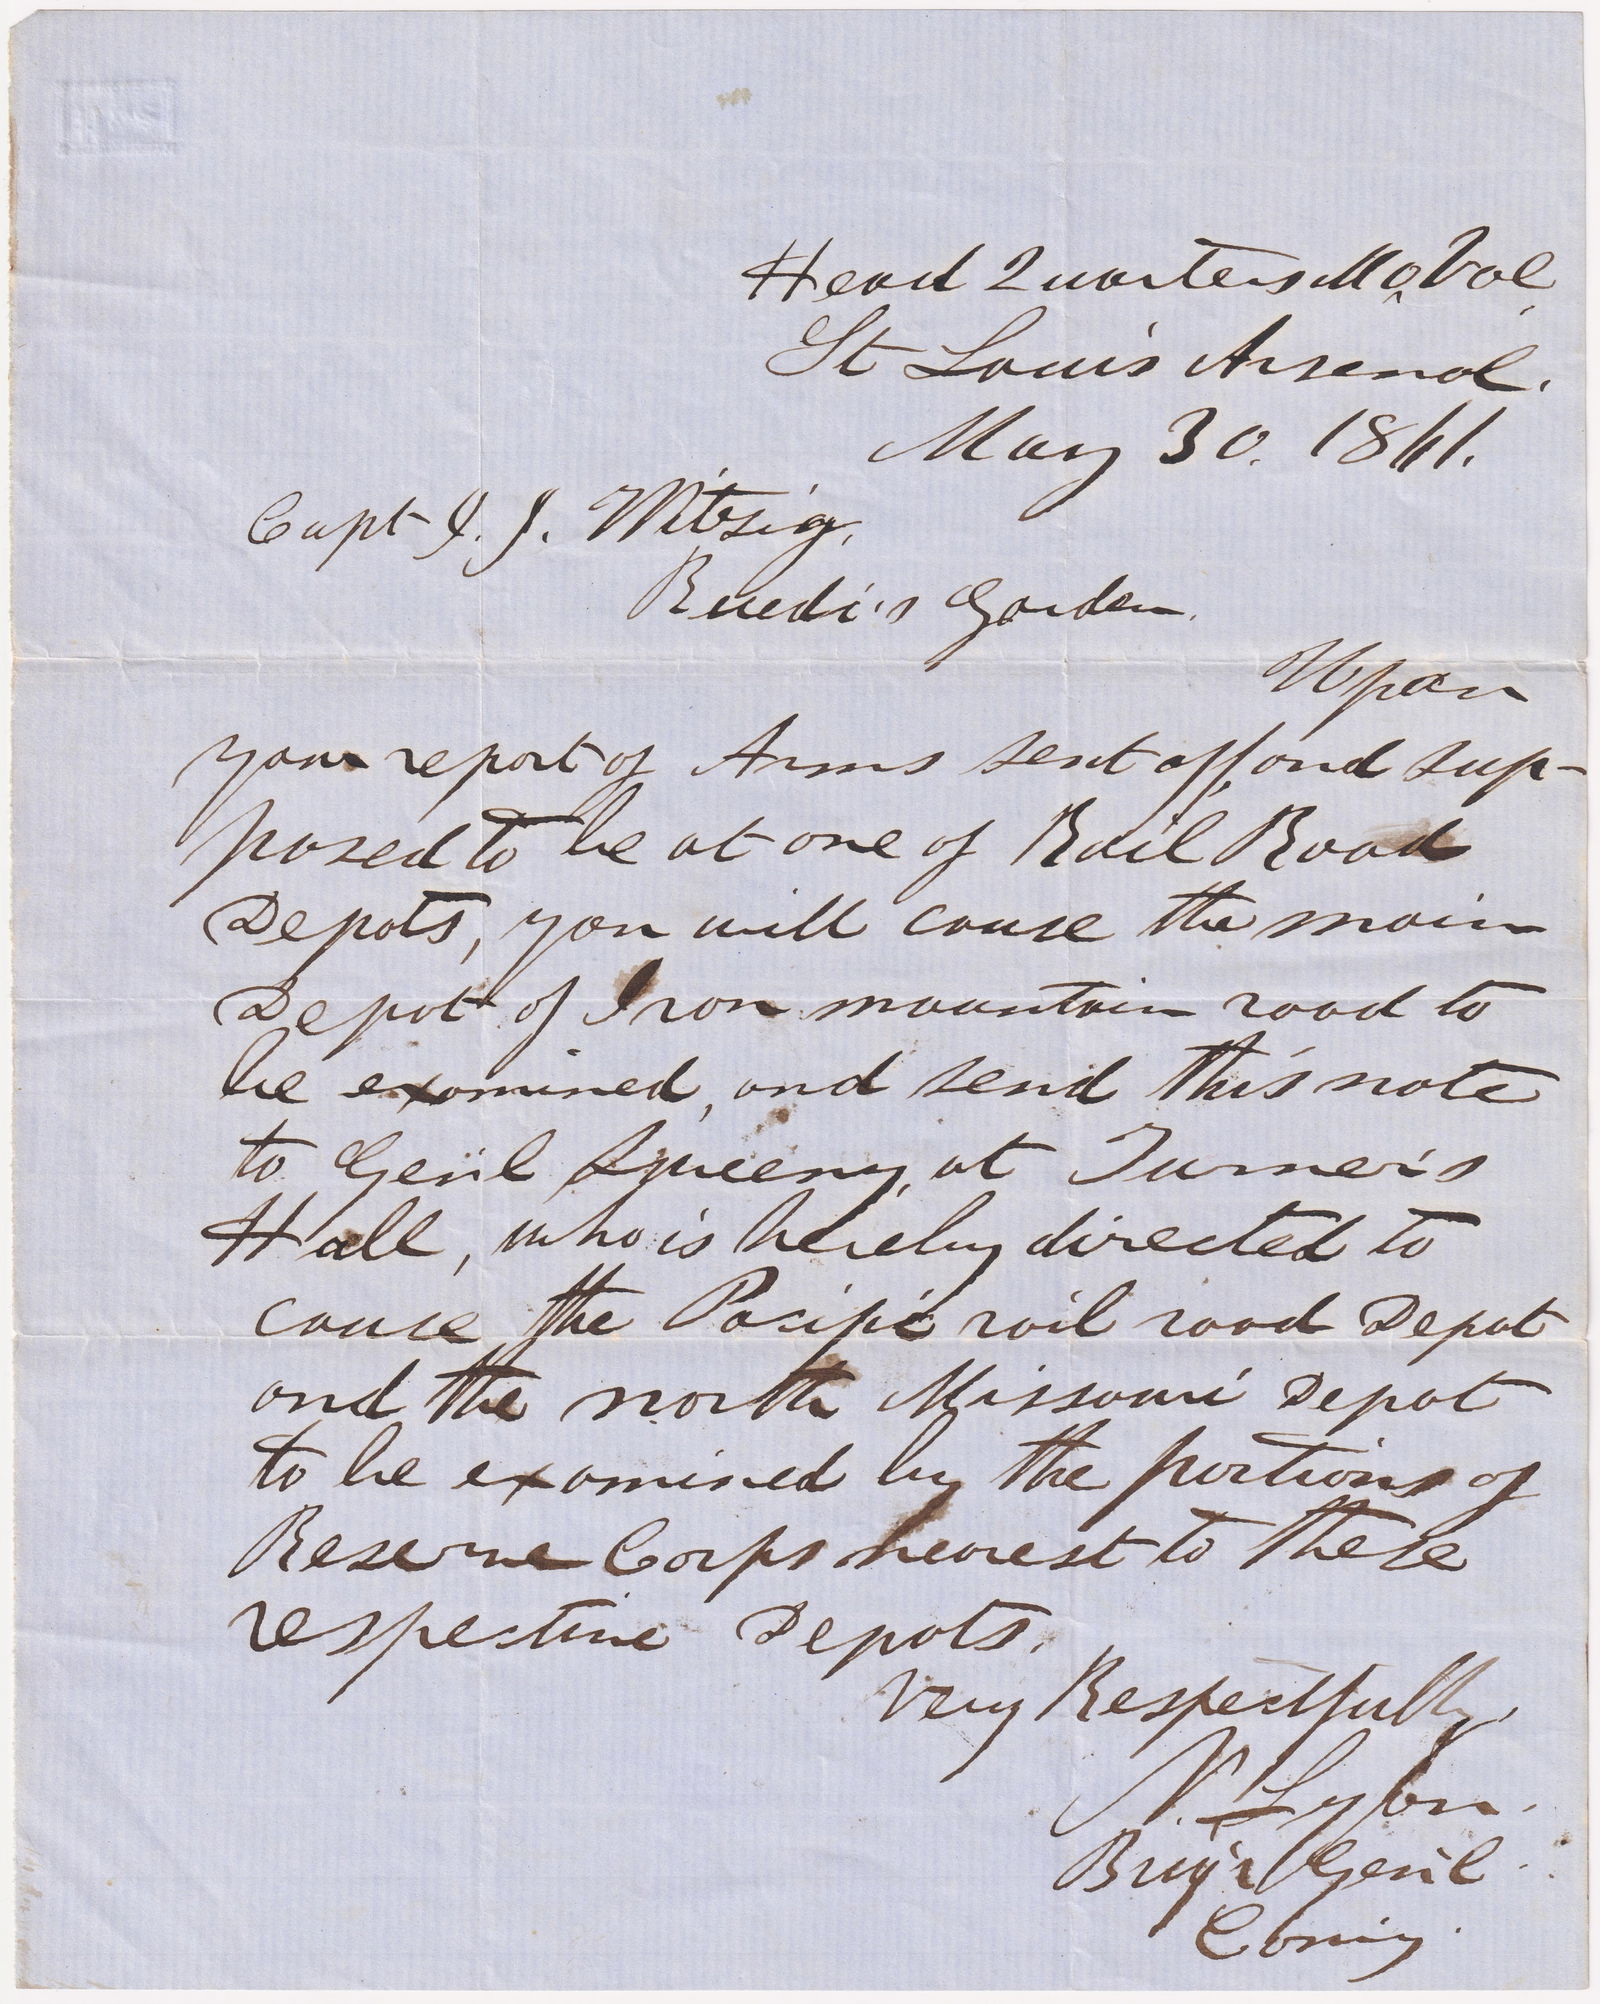 Head Quarters Mo Vol,
St Louis Arsenal.
May 30. 1861.
Capt J. J. Witzig,
Ruedi's Garden.
Upon
your report of Arms sent off, and sup-
posed to be at one of Rail Road
Depots, you will cause the main
Depot of Iron mountain road to
be examined, and send this note
to Gen'l Sweeny, at Turner's
Hall, who is hereby directed to
cause the Pacific rail road Depot
and the north Missouri Depot
to be examined by the portions of
Reserve Corps nearest to these
respective Depots.
Very Respectfully,
N. Lyon.
Brig'r Gen'l
Com'g.